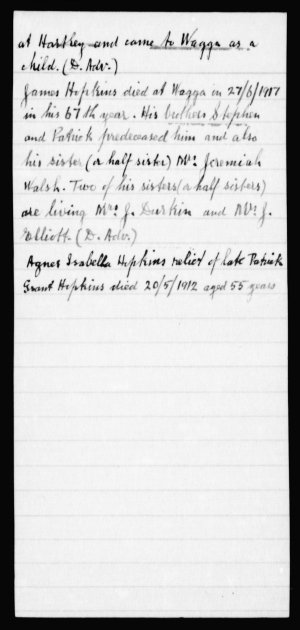 at Hartley and came to Wagga as a
child. (D. Adv.)
James Hopkins died at Wagga on 27/6/1917
in his 67th year. His brothers Stephen
and Patrick predeceased him and also
his sister (a half sister) Mrs Jeremiah
Walsh. Two of his sisters (a half sisters)
are living Mrs J. Durkin and Mrs J.
Elliott. (D. Adv.)
Agnes Isabella Hopkins relict of late Patrick
Grant Hopkins died 20/5/1912 aged 55 years